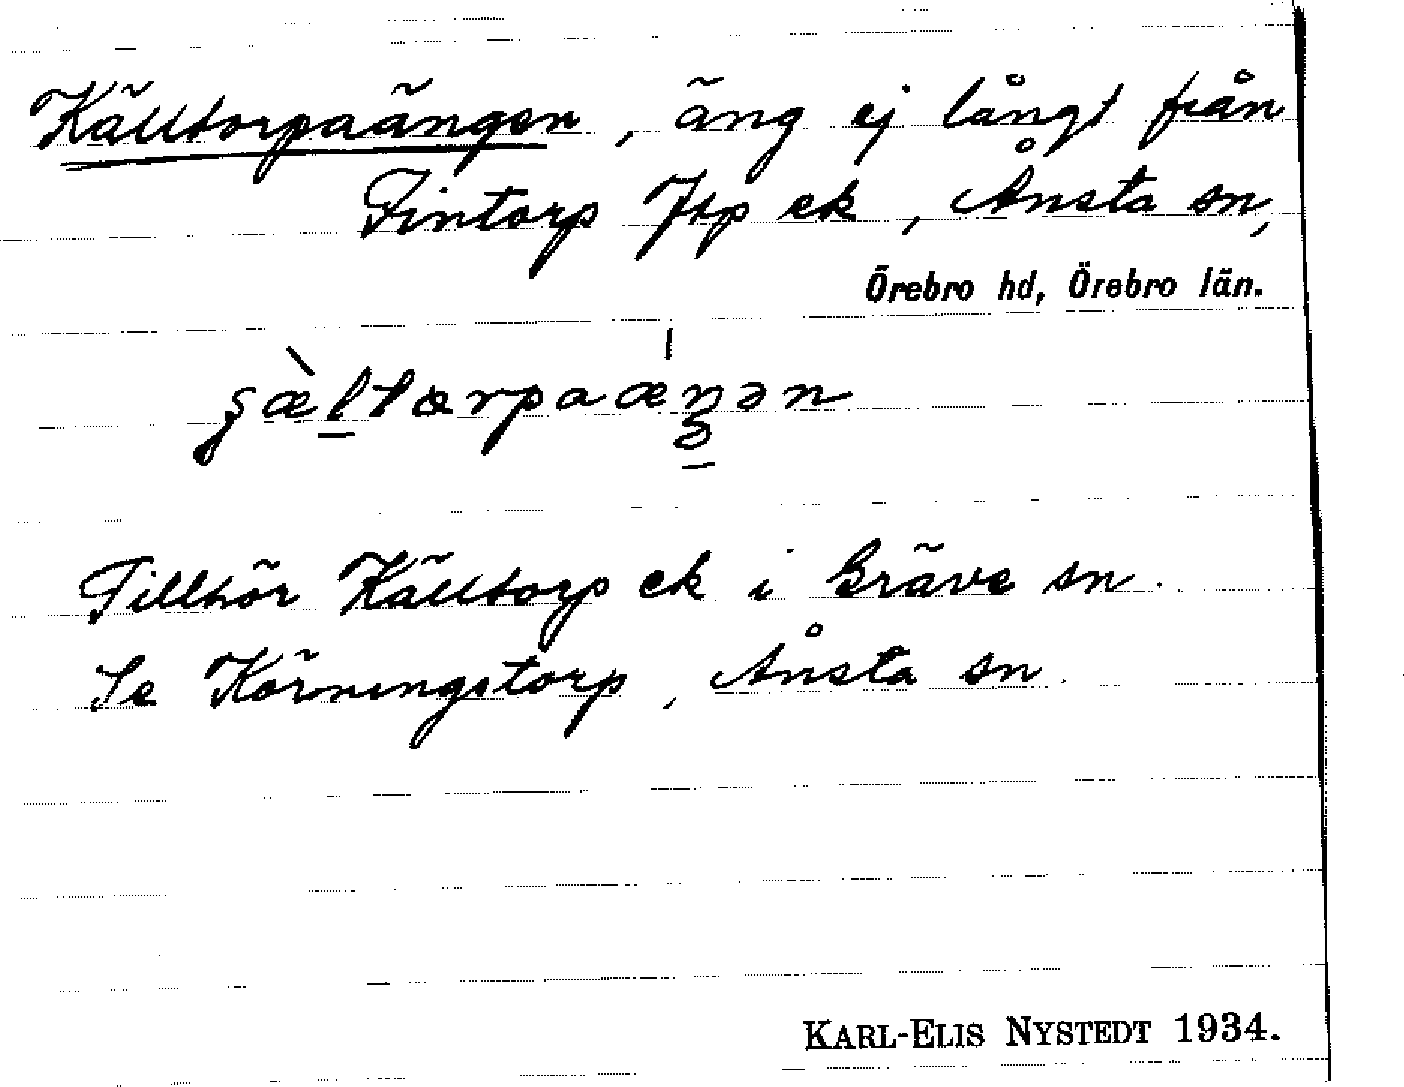 Källtorpaängen, äng ej långt från
Fintorp Jtp ek, Ånsta sn,
Örebro hd, Örebro län.
Tillhör Källtorp ek i Gräve sn.
Se Körningstorp, Ånsta sn.
KARL-ELIS NYSTEDT 1934.